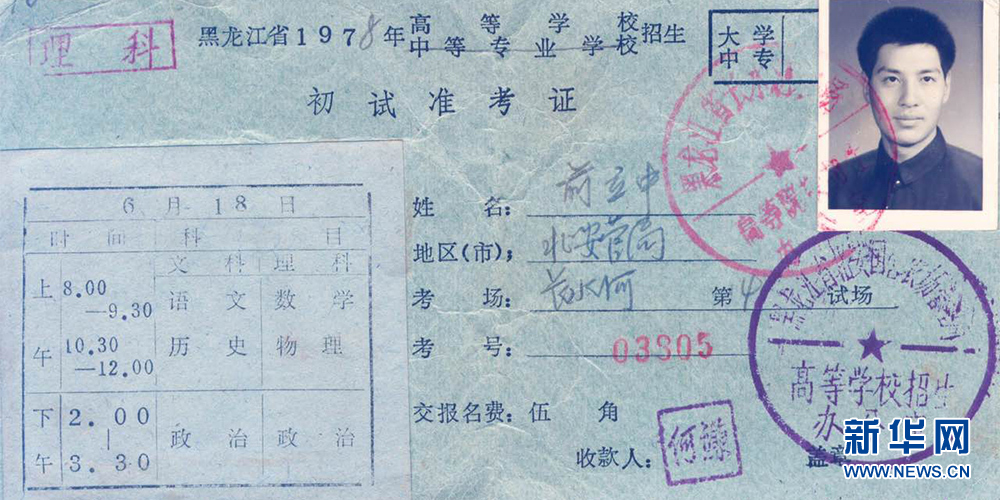 理 科
黑龙江省1978年高等学校招生
中等专业学校
大学
中专
初试准考证
6月18日
时间 科目
文科 理科
上午 8.00—9.30 语文 数学
10.30—12.00 历史 物理
下午 2.00—3.30 政治 政治
姓 名：前立中
地区(市)：北安管局
考 场：长水河 第4试场
考 号：03805
交报名费：伍角
收款人：何谦
盖章
高等学校招生
新华网
WWW.NEWS.CN